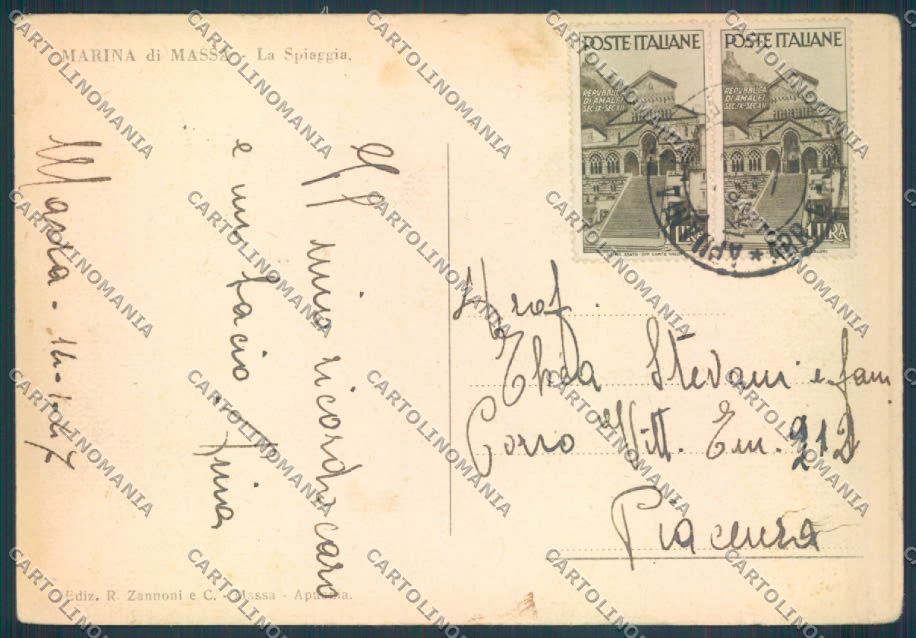 MARINA di MASSA - La Spiaggia.
Massa - 14-1-47
Il mio ricordo caro
e un bacio. Tina
POSTE ITALIANE
REPVBBLICA
DI AMALFI
SEC.IX-SEC.XII
POSTE ITALIANE
REPVBBLICA
DI AMALFI
SEC.IX-SEC.XII
1 LIRA
Prof.
Stevani e fam
Corso Vitt. Em. 212
Piacenza
Ediz. R. Zannoni e C. - Massa - Apuania.
CARTOLINOMANIA